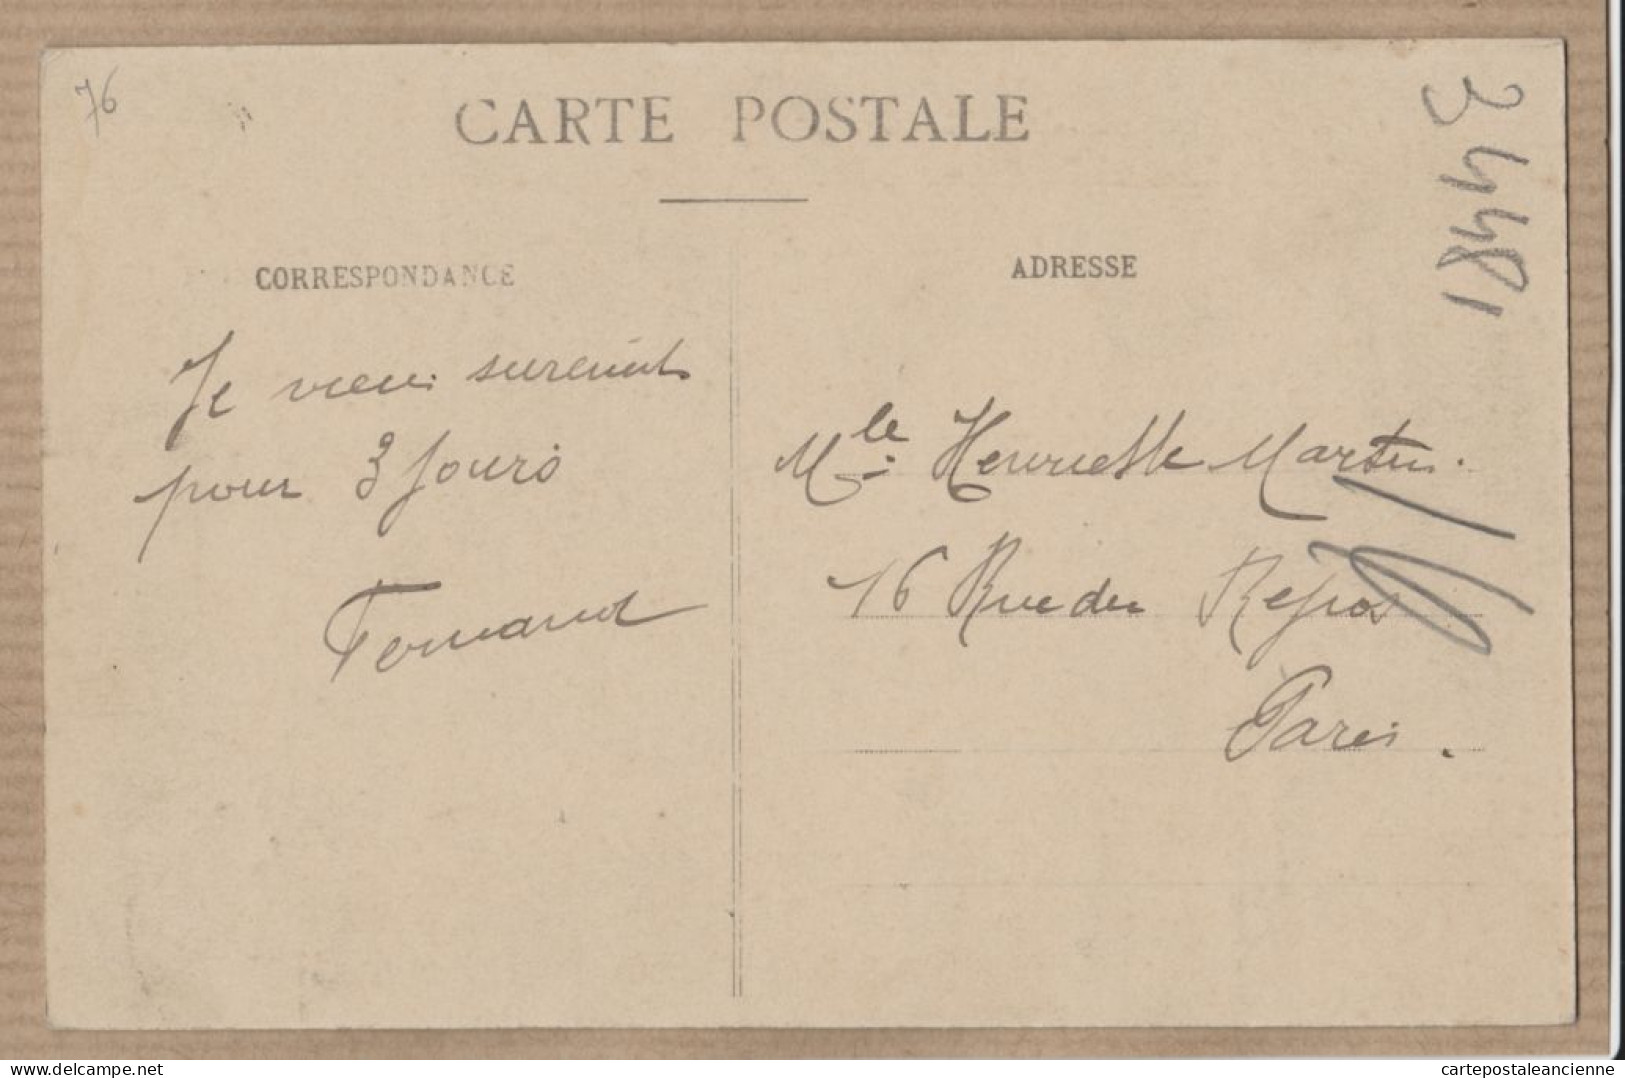 76
CARTE POSTALE
34481
CORRESPONDANCE
ADRESSE
Je viens
pour 3 Jours
Fernand
Mlle Henriette Martin.
16 Rue du Repos
Paris.
delcampe.net
cartepostaleancienne